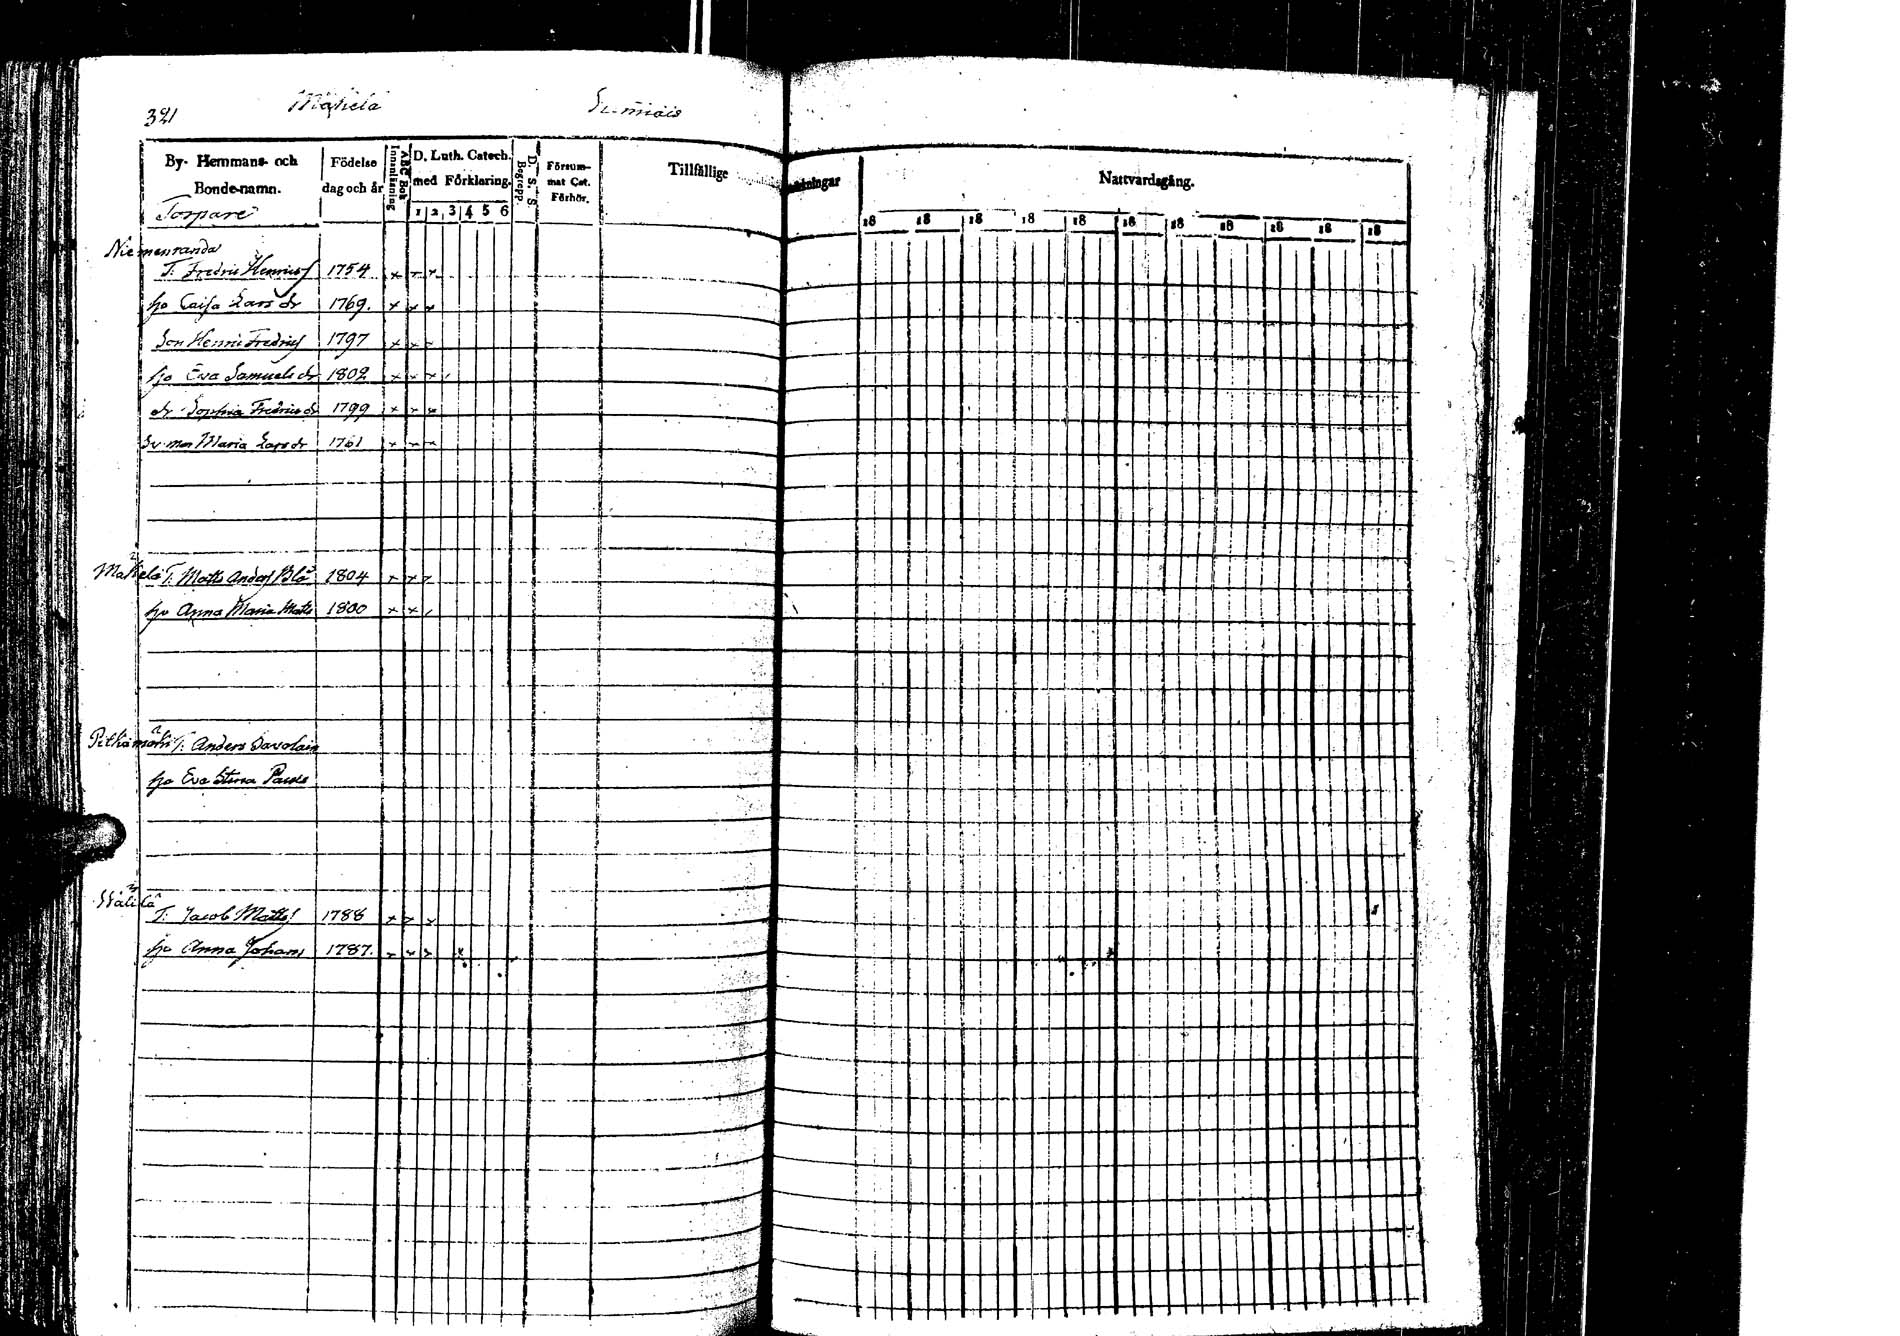 321 Mäkelä
By- Hemmans- och Bonde-namn. Födelse dag och år Innanläsning ABC Bok D. Luth. Catech. med Förklaring. 1 2 3 4 5 6 D. S. S. Begrepp. Försum- mat Cat. Förhör. Tillfällige Nattvardsgång.
Torpare 18 18 18 18 18 18 18 18 18 18 18
Niemenranda
T: Fredric Henrics 1754
ho Caisa Lars dr 1769.
Son Henric Fredrics 1797
ho Eva Samuels dr 1802
dr Sophia Fredrics dr 1799
Maria Lars dr 1761
Mäkelä T: Matts Anders Blå 1804
ho Anna Maria Matts 1800
T: Anders Savolain
ho Eva Stina Pauls
Wälilä
T: Jacob Matts 1788
ho Anna Johans 1787.